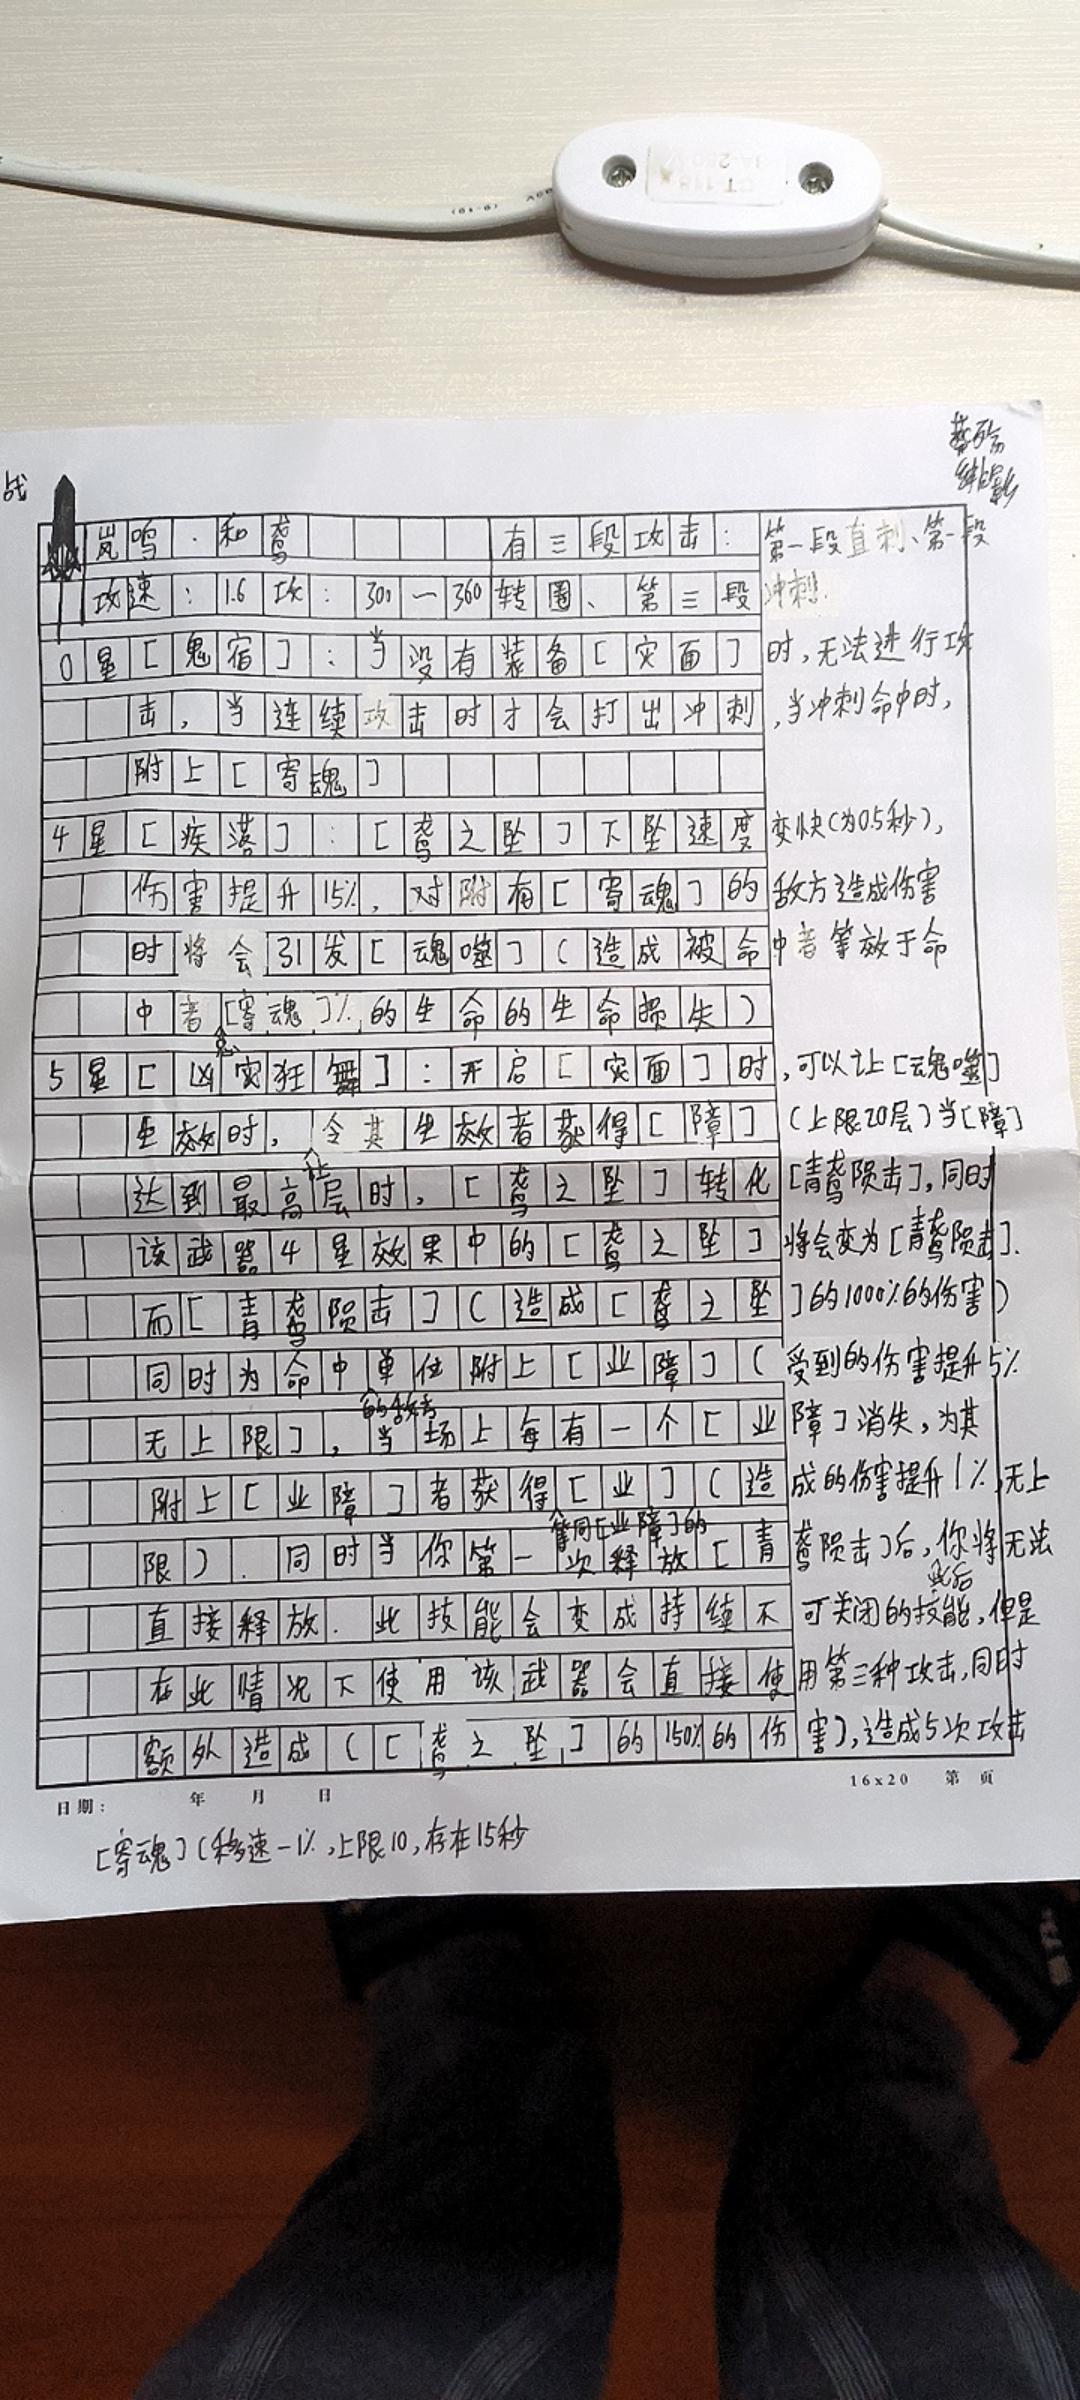 CT-118
3A-250V
战
岚鸣·和鸾 有三段攻击：第一段直刺、第一段
攻速：1.6 攻：300一360 转圈、第三段冲刺.
0星［鬼宿］：当没有装备［灾面］时，无法进行攻
击，当连续攻击时才会打出冲刺，当冲刺命中时，
附上［寄魂］
4星［疾落］：［鸾之坠］下坠速度变快（为0.5秒），
伤害提升15%，对附有［寄魂］的敌方造成伤害
时将会引发［魂噬］（造成被命中者等效于命
中者［寄魂］%的生命的生命损失）
5星［凶灾狂舞］：开启［灾面］时，可以让［魂噬］
生效时，令其生效者获得［障］（上限20层）当［障］
达到最高层时，让［鸾之坠］转化［青鸾陨击］，同时
该武器4星效果中的［鸾之坠］将会变为［青鸾陨击］.
而［青鸾陨击］（造成［鸾之坠］的1000%的伤害）
同时为命中单位附上［业障］（受到的伤害提升5%
无上限］，当场上每有一个［业障］消失，为其
的敌方
附上［业障］者获得［业］（造成的伤害提升1%，无上
限）.同时当你第一次释放［青鸾陨击］后，你将无法
等同［业障］的
直接释放.此技能会变成持续不可关闭的技能，但是
此后
在此情况下使用该武器会直接使用第三种攻击，同时
额外造成（［鸾之坠］的150%的伤害］，造成5次攻击
日期： 年 月 日 16x20 第 页
［寄魂］（移速-1%，上限10，存在15秒